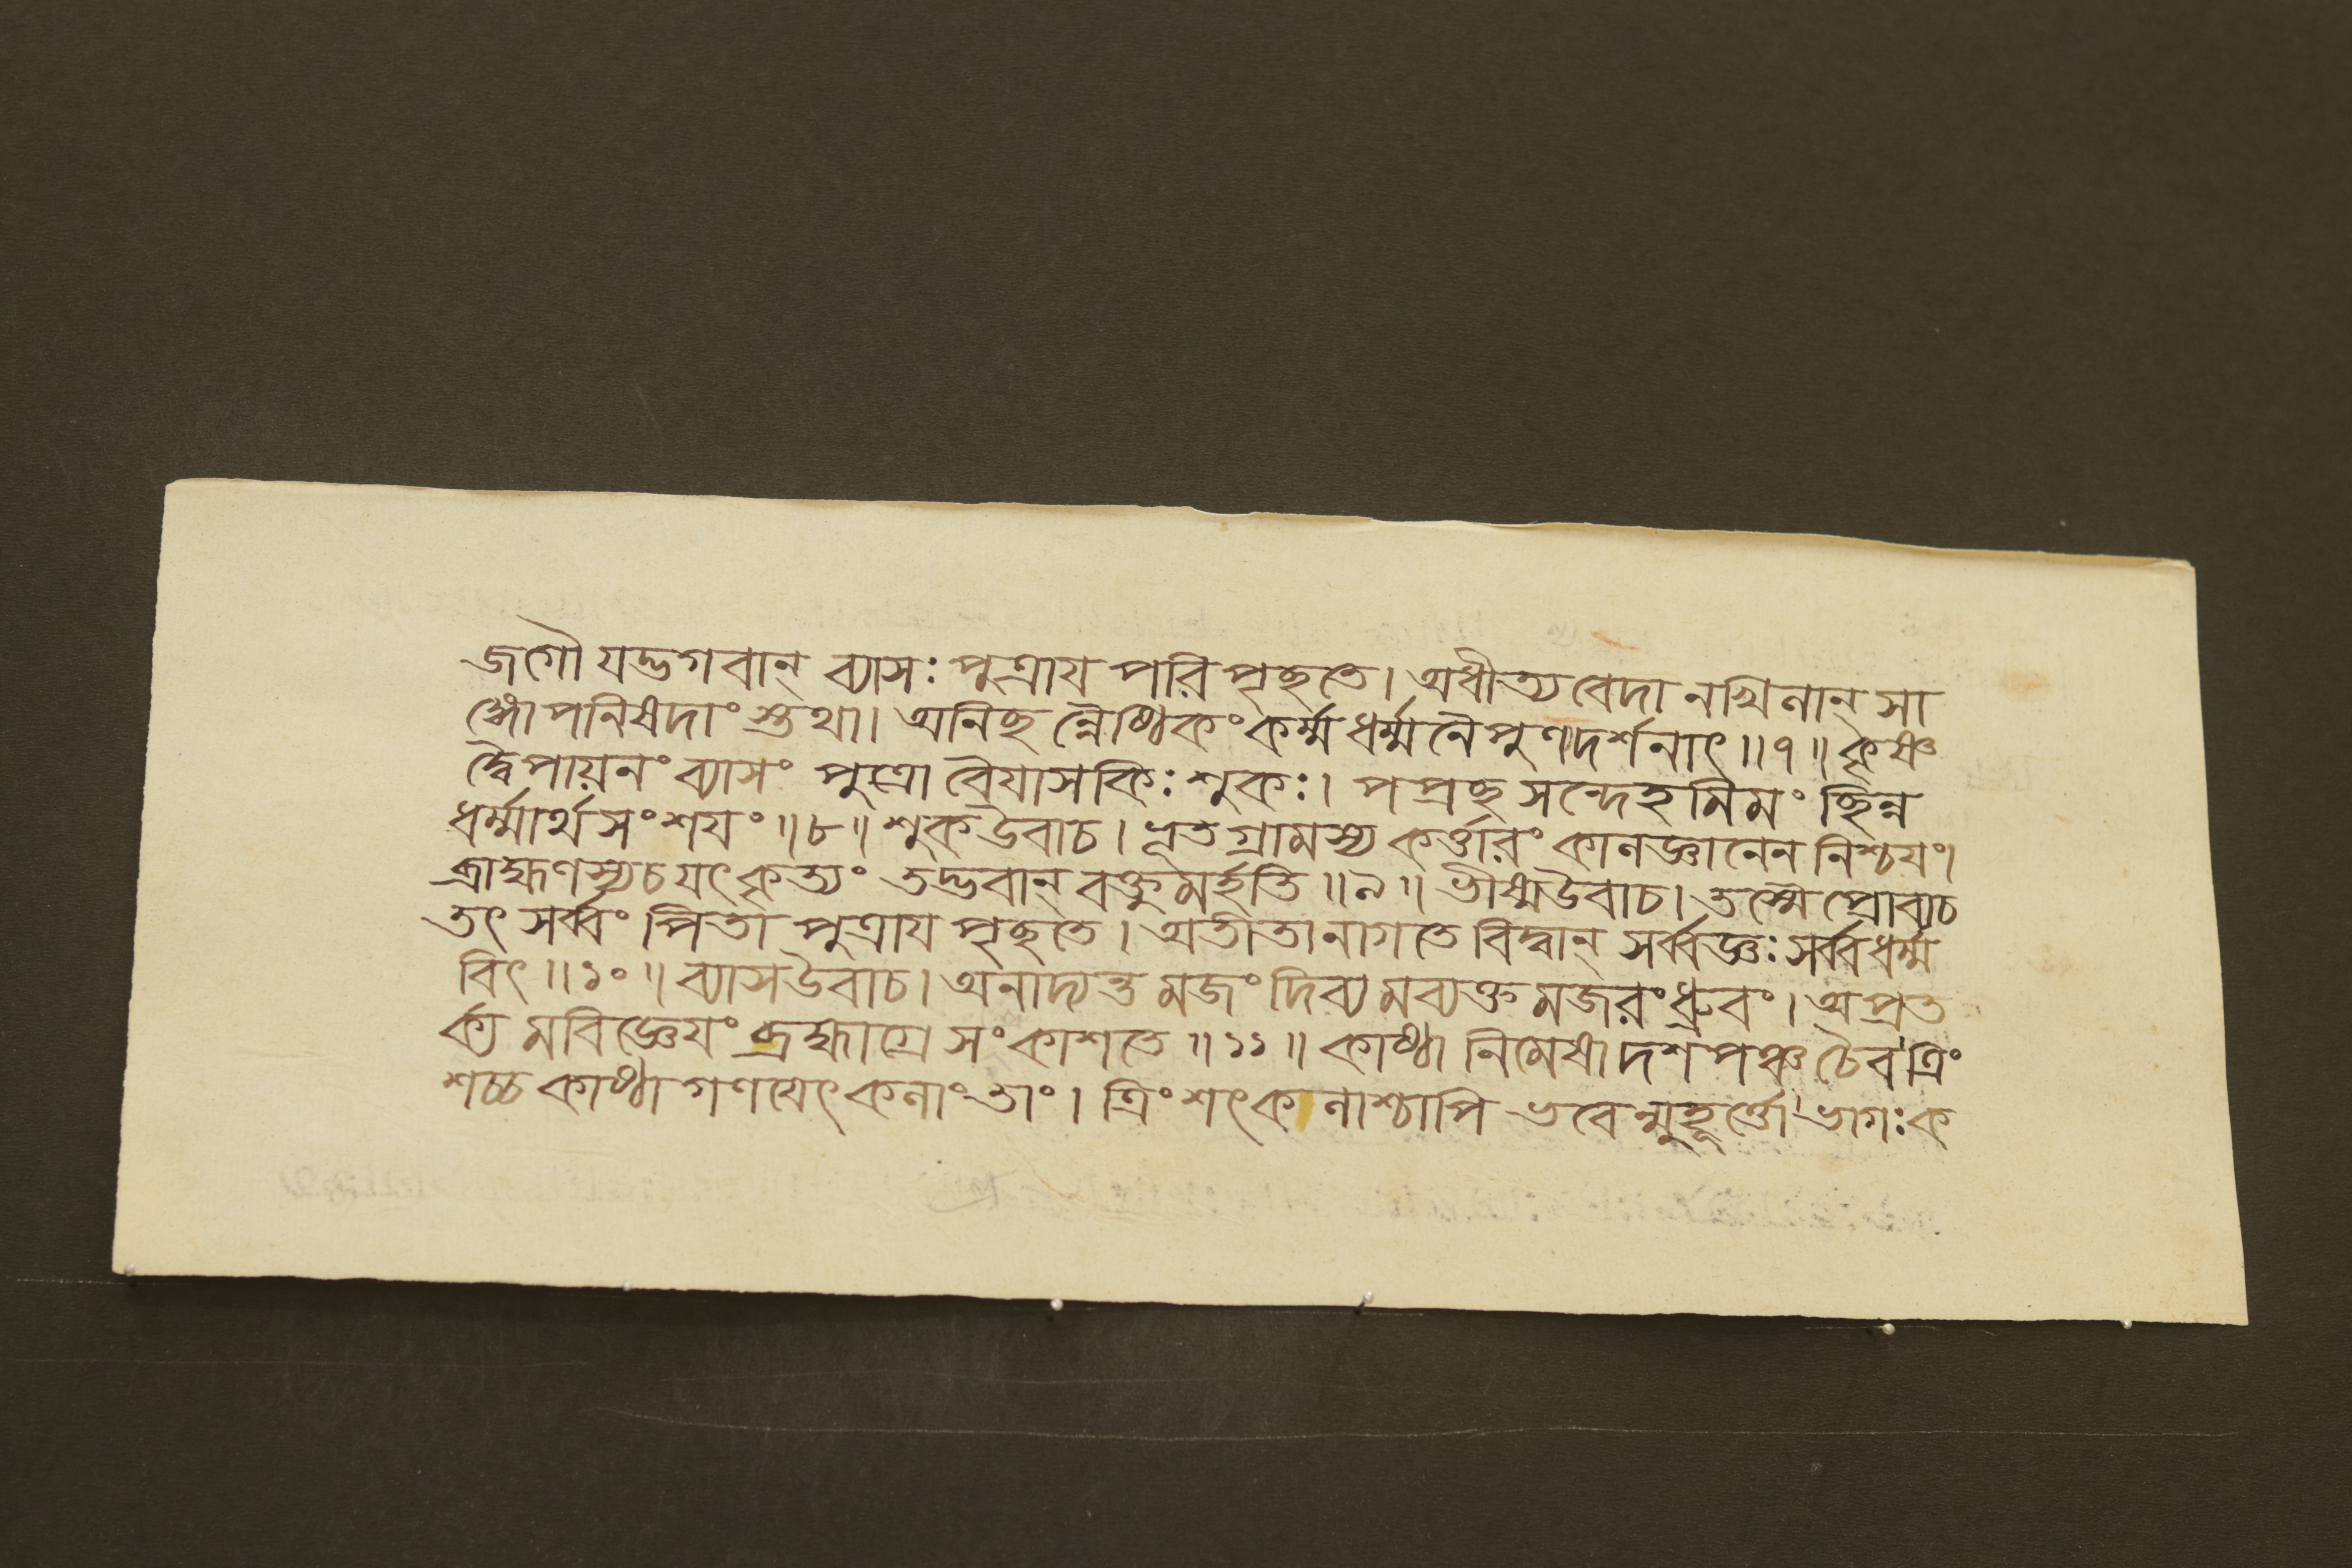 জগৌ যদ্ভগবান্ ব্যাসঃ পুত্রায পরিপৃচ্ছতে। অধীত্য বেদানখিলান্ সা
ঙ্গোপনিষদাং স্তথা। অনিচ্ছন্নৈষ্ঠিকং কর্ম্ম ধর্ম্মনৈপুণদর্শনাৎ॥৭॥ কৃষ্ণ
দ্বৈপায়নং ব্যাসং পুত্রো বৈযাসকিঃ শুকঃ। পপ্রচ্ছ সন্দেহমিমং চ্ছিন্ন
ধর্ম্মার্থসংশযং॥৮॥ শুকউবাচ। ভূতগ্রামস্য কর্ত্তারং কালজ্ঞানেন নিশ্চযং।
ব্রাহ্মণস্যচ যৎ কৃত্যং তদ্ভবান্ বক্তুমর্হতি॥৯॥ ভীষ্মউবাচ। তস্মৈ প্রোবাচ
তৎ সর্ব্বং পিতা পুত্রায পৃচ্ছতে। অতীতানাগতে বিদ্বান্ সর্ব্বজ্ঞঃ সর্ব্বধর্ম্ম
বিৎ॥১০॥ ব্যাসউবাচ। অনাদ্যন্তমজং দিব্যমব্যক্তমজরং ধ্রুবং। অপ্রত
র্ক্যমবিজ্ঞেযং ব্রহ্মাগ্রে সংকাশতে॥১১॥ কাষ্ঠা নিমেষা দশ পঞ্চ চৈব ত্রিং
শচ্চ কাষ্ঠা গণযেৎ কলাং তাং। ত্রিংশৎকলাশ্চাপি ভবেন্মুহূর্ত্তো ভাগঃ ক